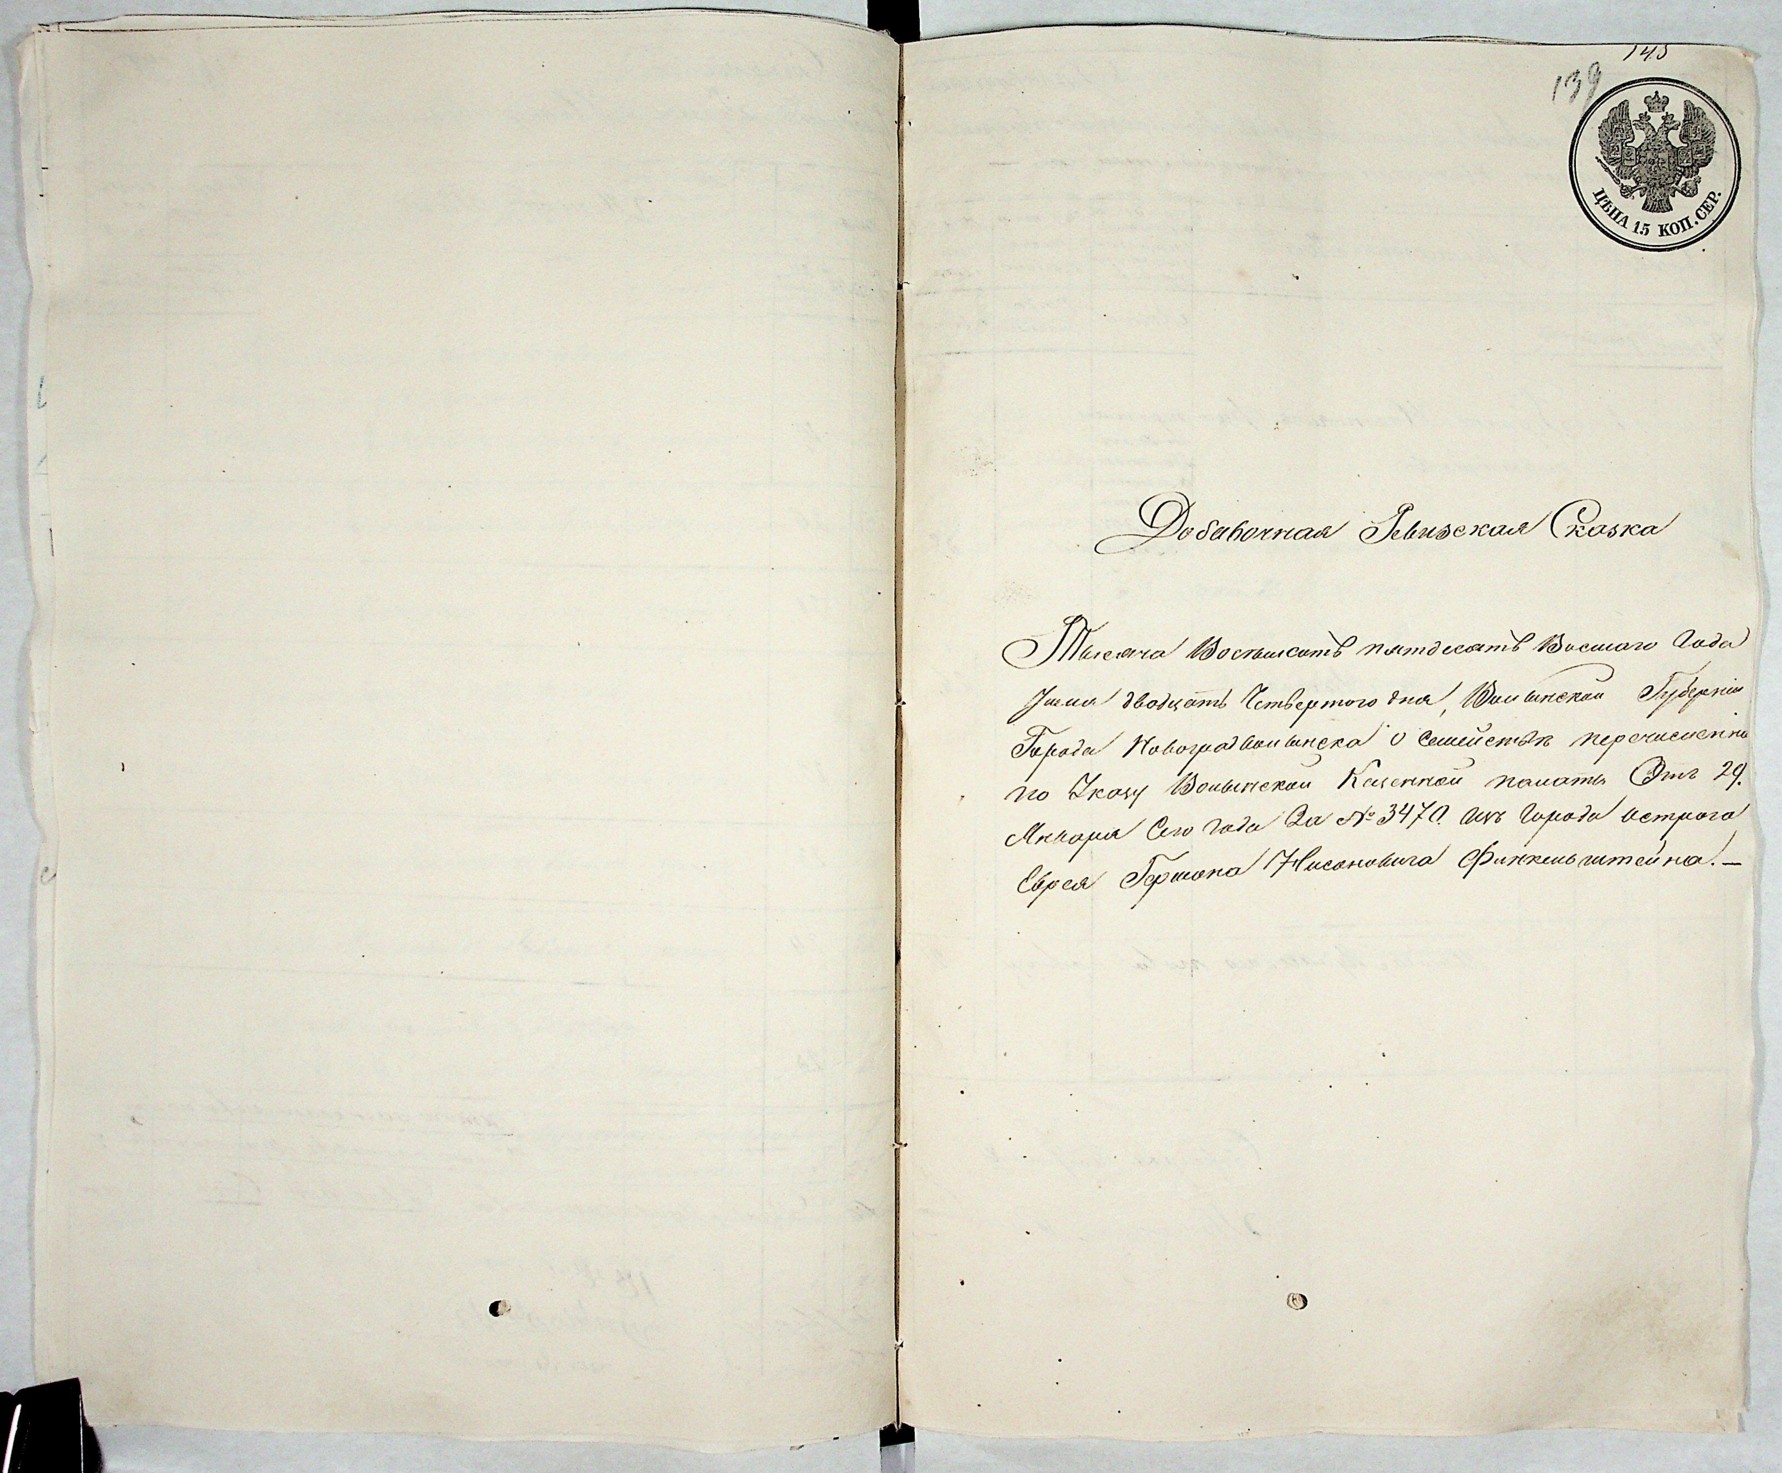 145
139
ЦѢНА 15 КОП. СЕР.
Добавочная Ревизская Сказка
Тысяча Восемьсотъ пятдесятъ Восмаго Года
двадцать Четвертого дня, Волынской Губерніи
Города Новоградволынска о Семействѣ перечисленно
по Указу Волынской Казенной палаты Отъ 29.
Января Сего Года За № 3470. изъ Города Острога
Еврея Гершона Нисоновича Финкельштейна. —